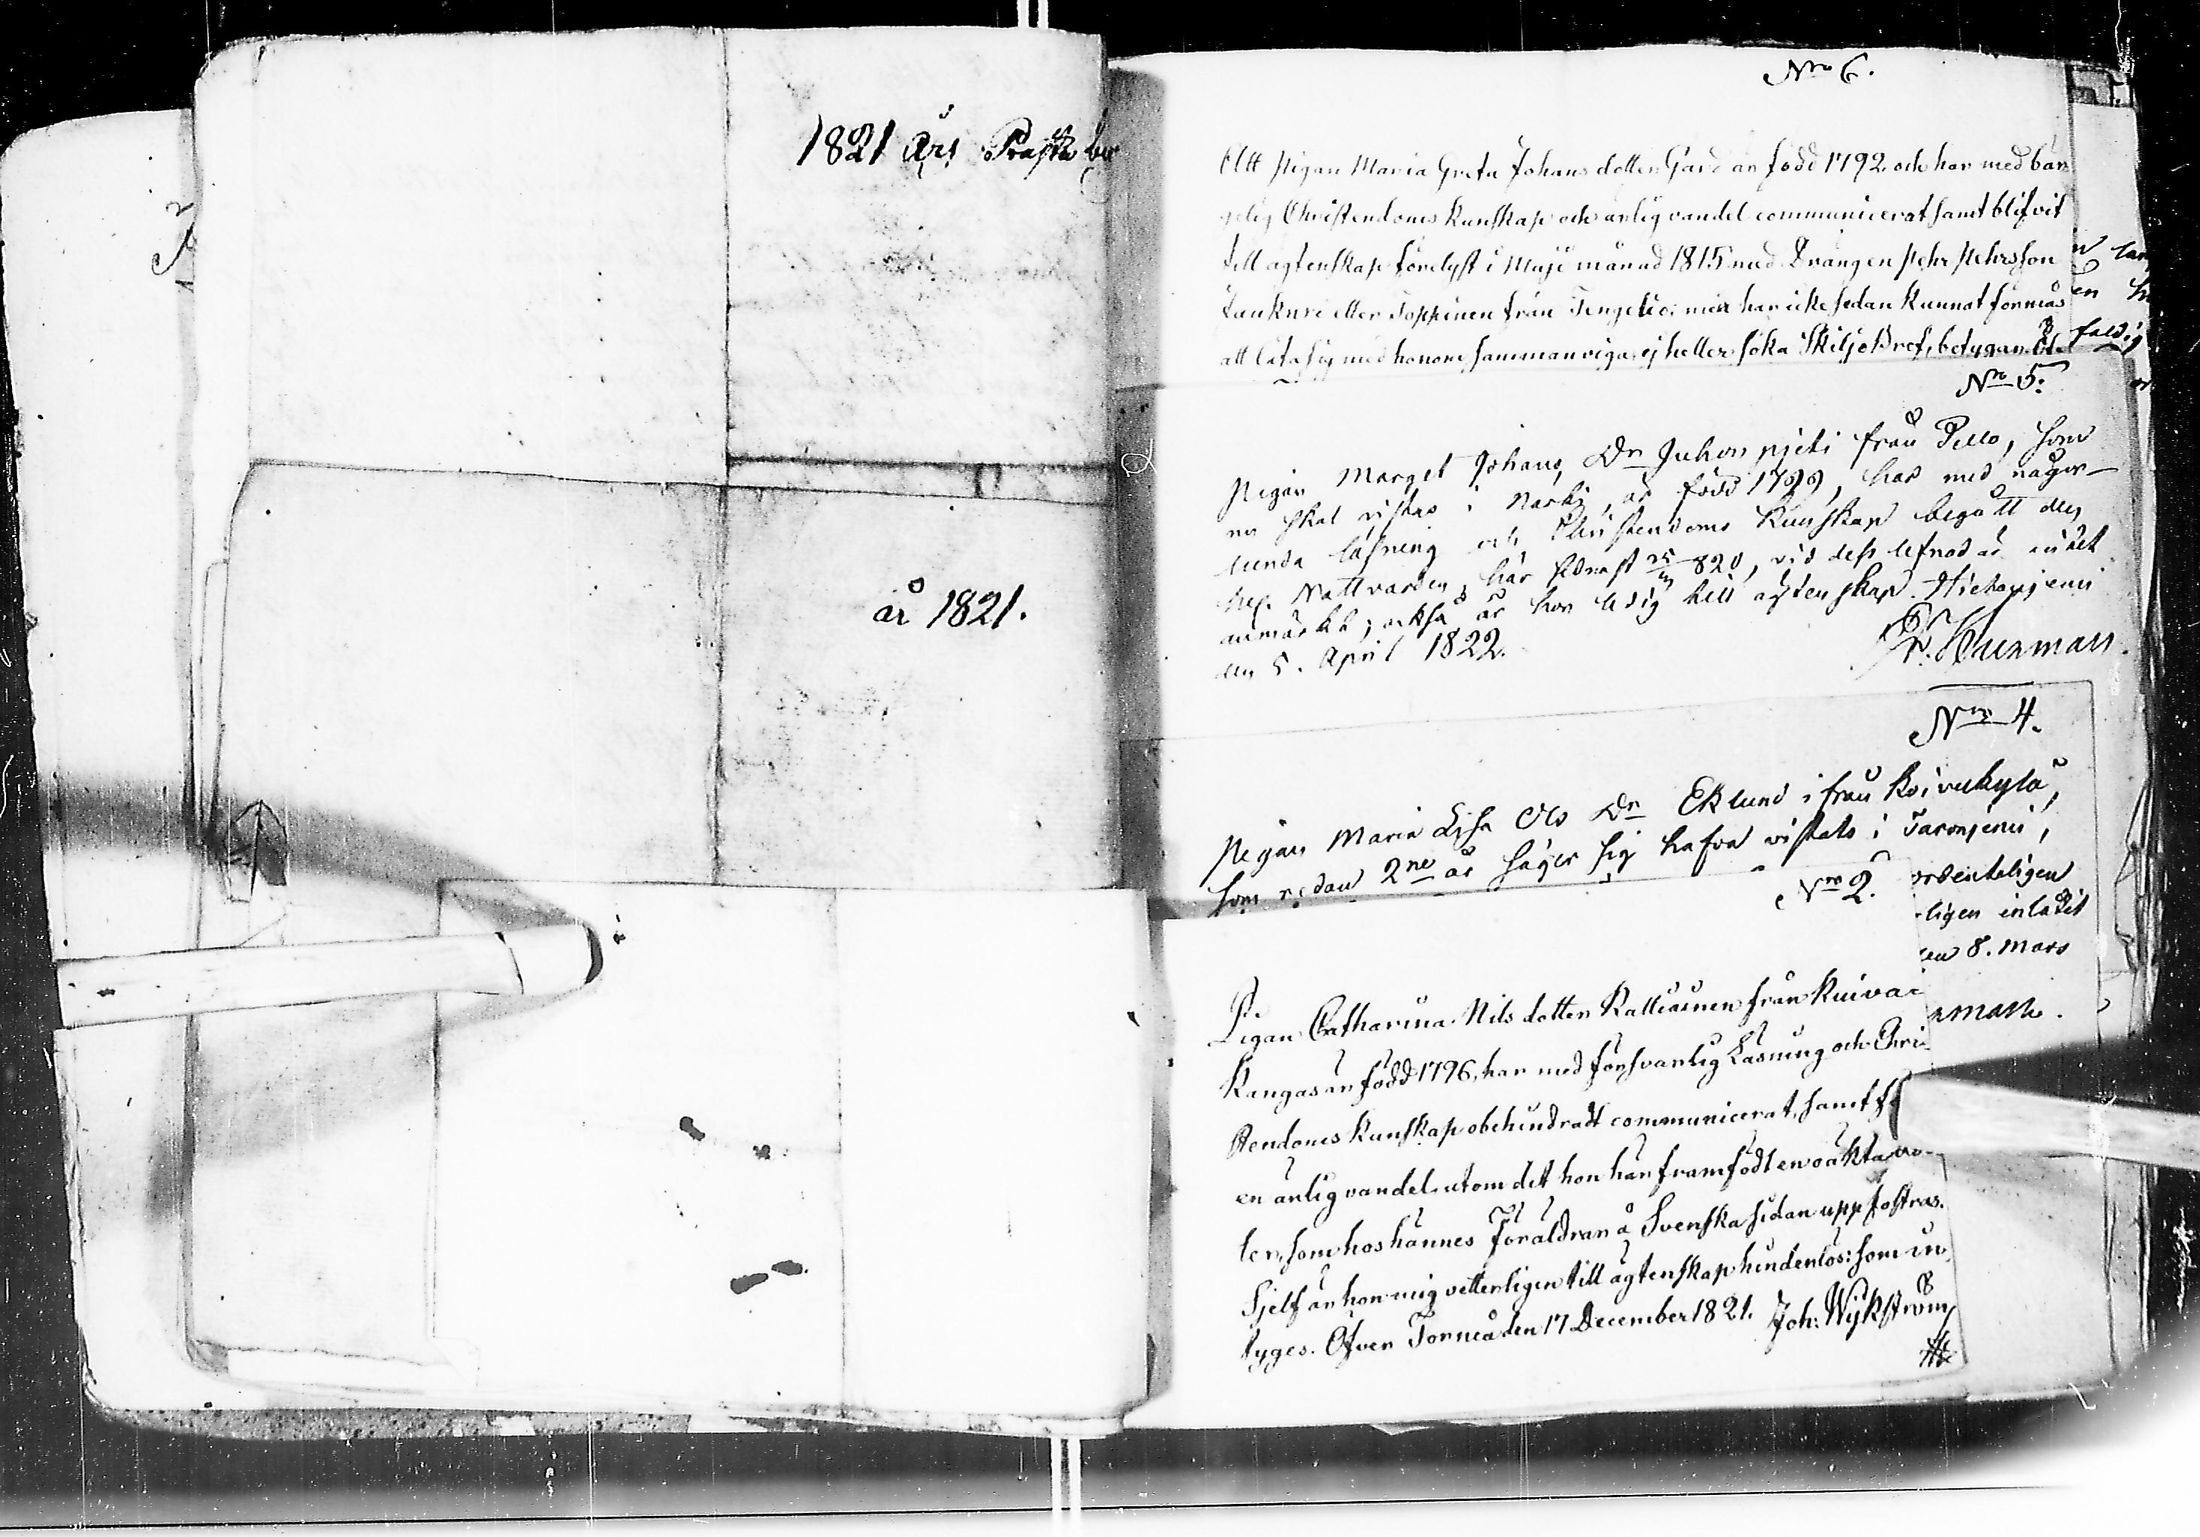 1821 års Präste be
år 1821.
Nro 6.
Att Pigan Maria Greta Johans dotter Gard är född 1792 och har med bär
gelig Christendoms kunskap och ärlig vandel communicerat samt blifvit
till ägtenskap förelyst i Maji månad 1815 med Drängen Pehr Pehrsson
eller Toppinen från Tengeliö; men har icke sedan kunnat förmås
att låta sig med honom sammanviga, ej heller söka Skiljobref, betygar
Nro 5.
Pigan Marget Johans Dr Juhonpjeti från Pello, som
nu skal vistas i Narki, är född 1799, har med någor-
lunda läsning och Christendoms kunskap begått den
hel. Nattvarden, här sednast 820, vid dess lefnad är intet
anmärkt; också är hon ledig till äktenskap. Hietaniemi
den 5. April 1822.
Nro 4.
Pigan Maria Lisa Ols Dr Eklund ifrån Koivukylä,
som redan 2ne år säger sig hafva vistats i
ordenteligen
ligen inlåtit
en 8. Mars
Nro 2.
Pigan Catharina Nils dotter Kalliainen från Kuiva
Kangas är född 1796, har med försvarlig Läsning och Chri-
stendoms kunskap obehindradt communicerat, samt
en ärlig vandel, utom det hon här framfödt en oäkta
ter, som hos hännes Föräldrar å Svenska sidan uppfostras.
Sjelf är hon mig vetterligen till ägtenskap hinderlös: som in
tyges. Öfver Torneå den 17 December 1821. Joh: Wijkström